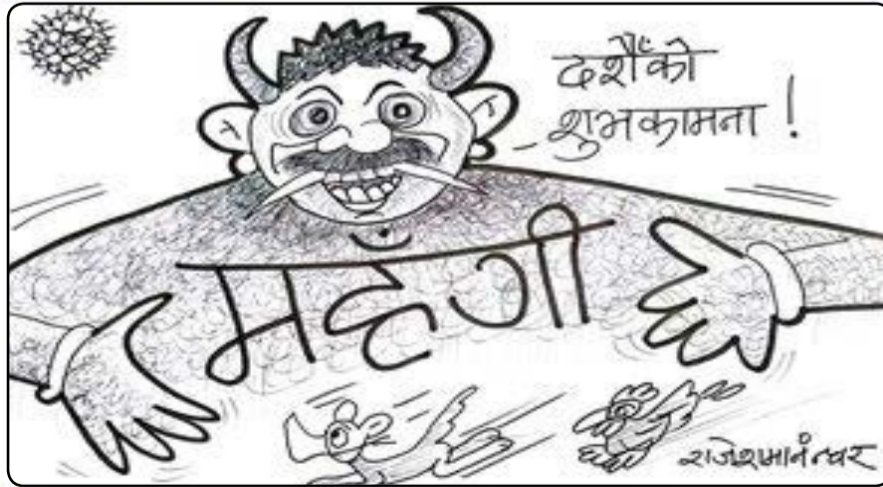 दशैंको
शुभकामना !
महँगी
राजेशमानन्धर